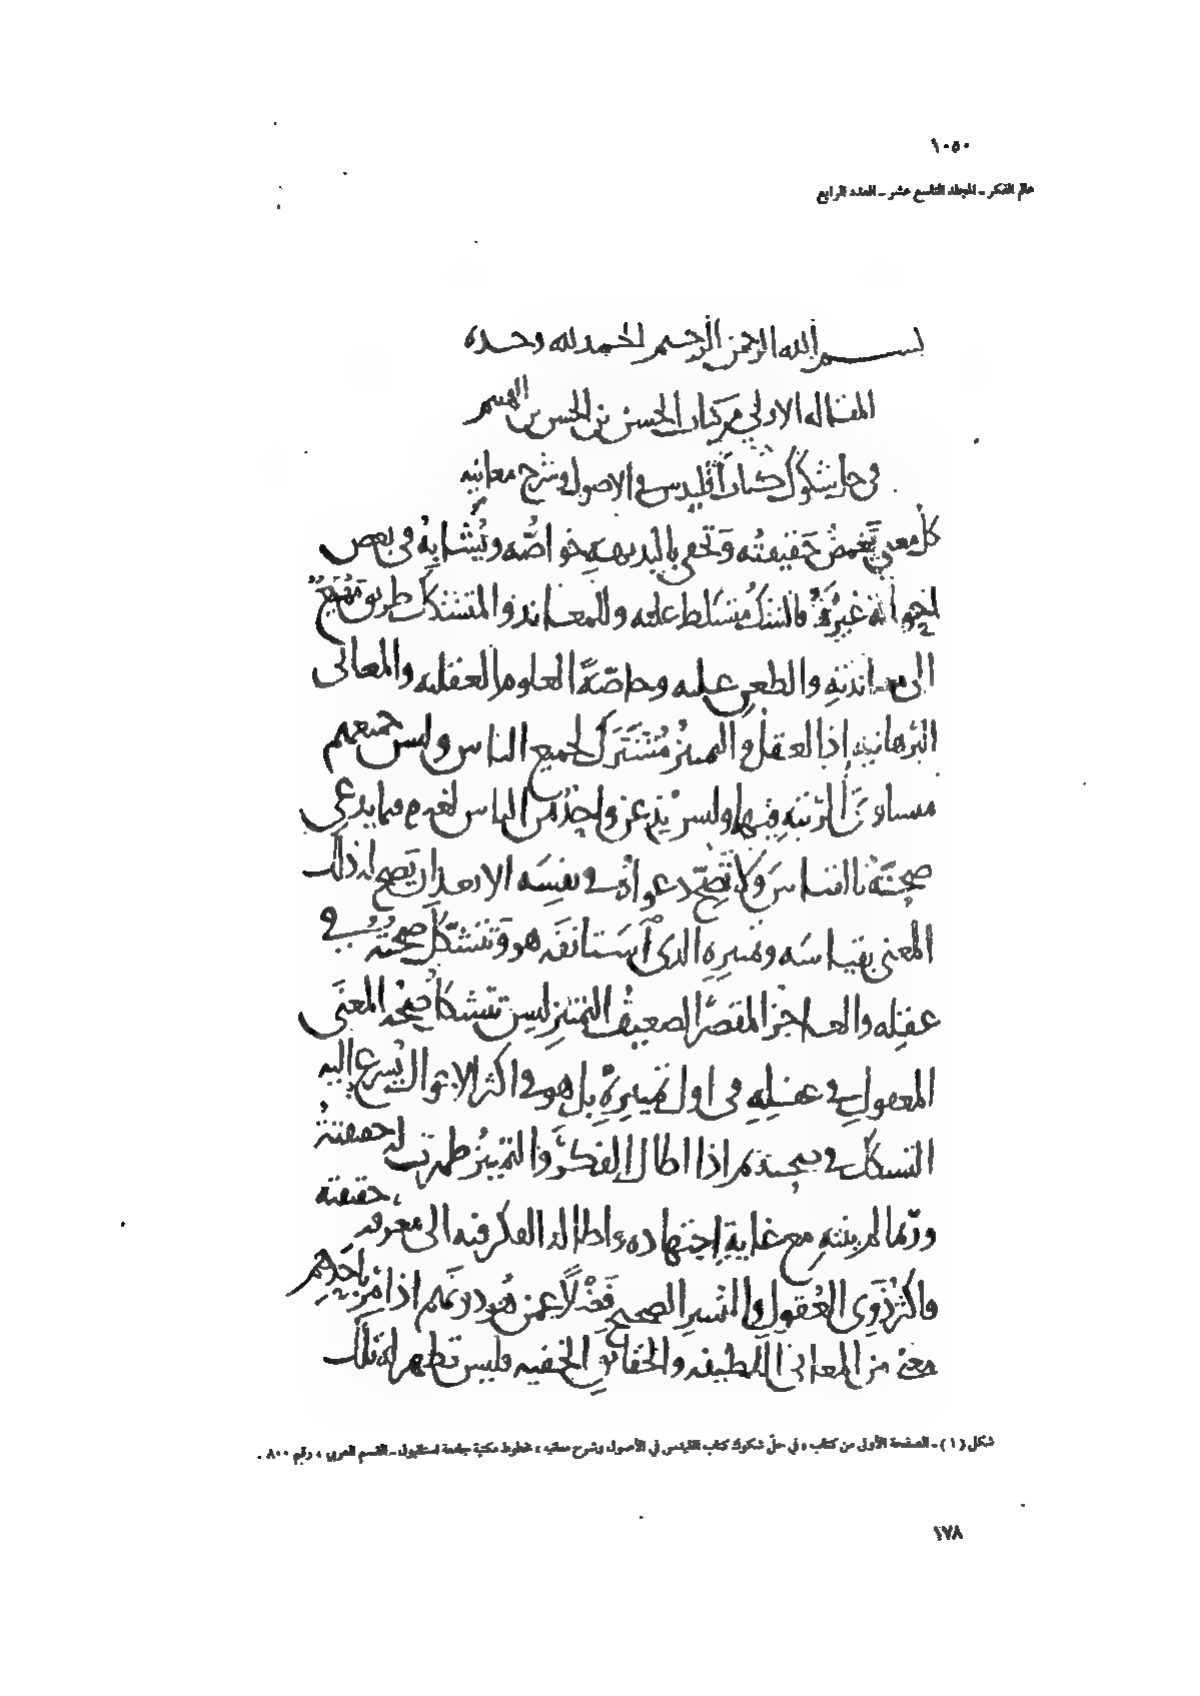 ١٠٥٠
عالم الفكر - المجلد التاسع عشر - العدد الرابع
بسم الله الرحمن الرحيم الحمد لله وحده
المقاله الاولى من كتاب الحسن بن الحسن بن الهيثم
في حل شكوك كتاب اقليدس في الاصول وشرح معانيه
كل معنى تغمض حقيقته وتخفى بالبديهه خواصه ويشابه في بعض
غيره فالشك متسلط عليه وللمعاند والمتشكك طريق مهيع
الى معاندته والطعن عليه وخاصة العلوم العقليه والمعانى
البرهانيه اذا العقل والتميز مشترك لجميع الناس وليس جميعهم
متساوى الرتبه فيها وليس يذعن واحد من الناس لغيره فيما يدعى
صحته بالقياس ولا تصح دعواه في نفسه الا بعد ان يصح له ذلك
المعنى بقياسه وتميزه الذى استانفه هو وتتشكل صحته في
عقله والعاجز المقصر الضعيف التميز ليس تتشكل صحة المعنى
المعقول في عقله في اول تميزه بل هو في اكثر الاحوال يسرع اليه
التشكك في صحته ثم اذا اطال الفكر والتميز ظهرت له حقيقته
وربما لم ينته مع غاية اجتهاده واطالة الفكر فيه الى معرفة
حقيقته
واكثر ذوى العقول والتميز الصحيح فضلا عمن هو دونهم اذا مر باحدهم
معنى من المعانى اللطيفه والحقائق الخفيه فليس تظهر له تلك
شكل (١) - الصفحة الأولى من كتاب « في حلّ شكوك كتاب اقليدس في الأصول وشرح معانيه » مخطوط مكتبة جامعة استنبول - القسم العربي ، رقم ٨٠٠ .
١٧٨